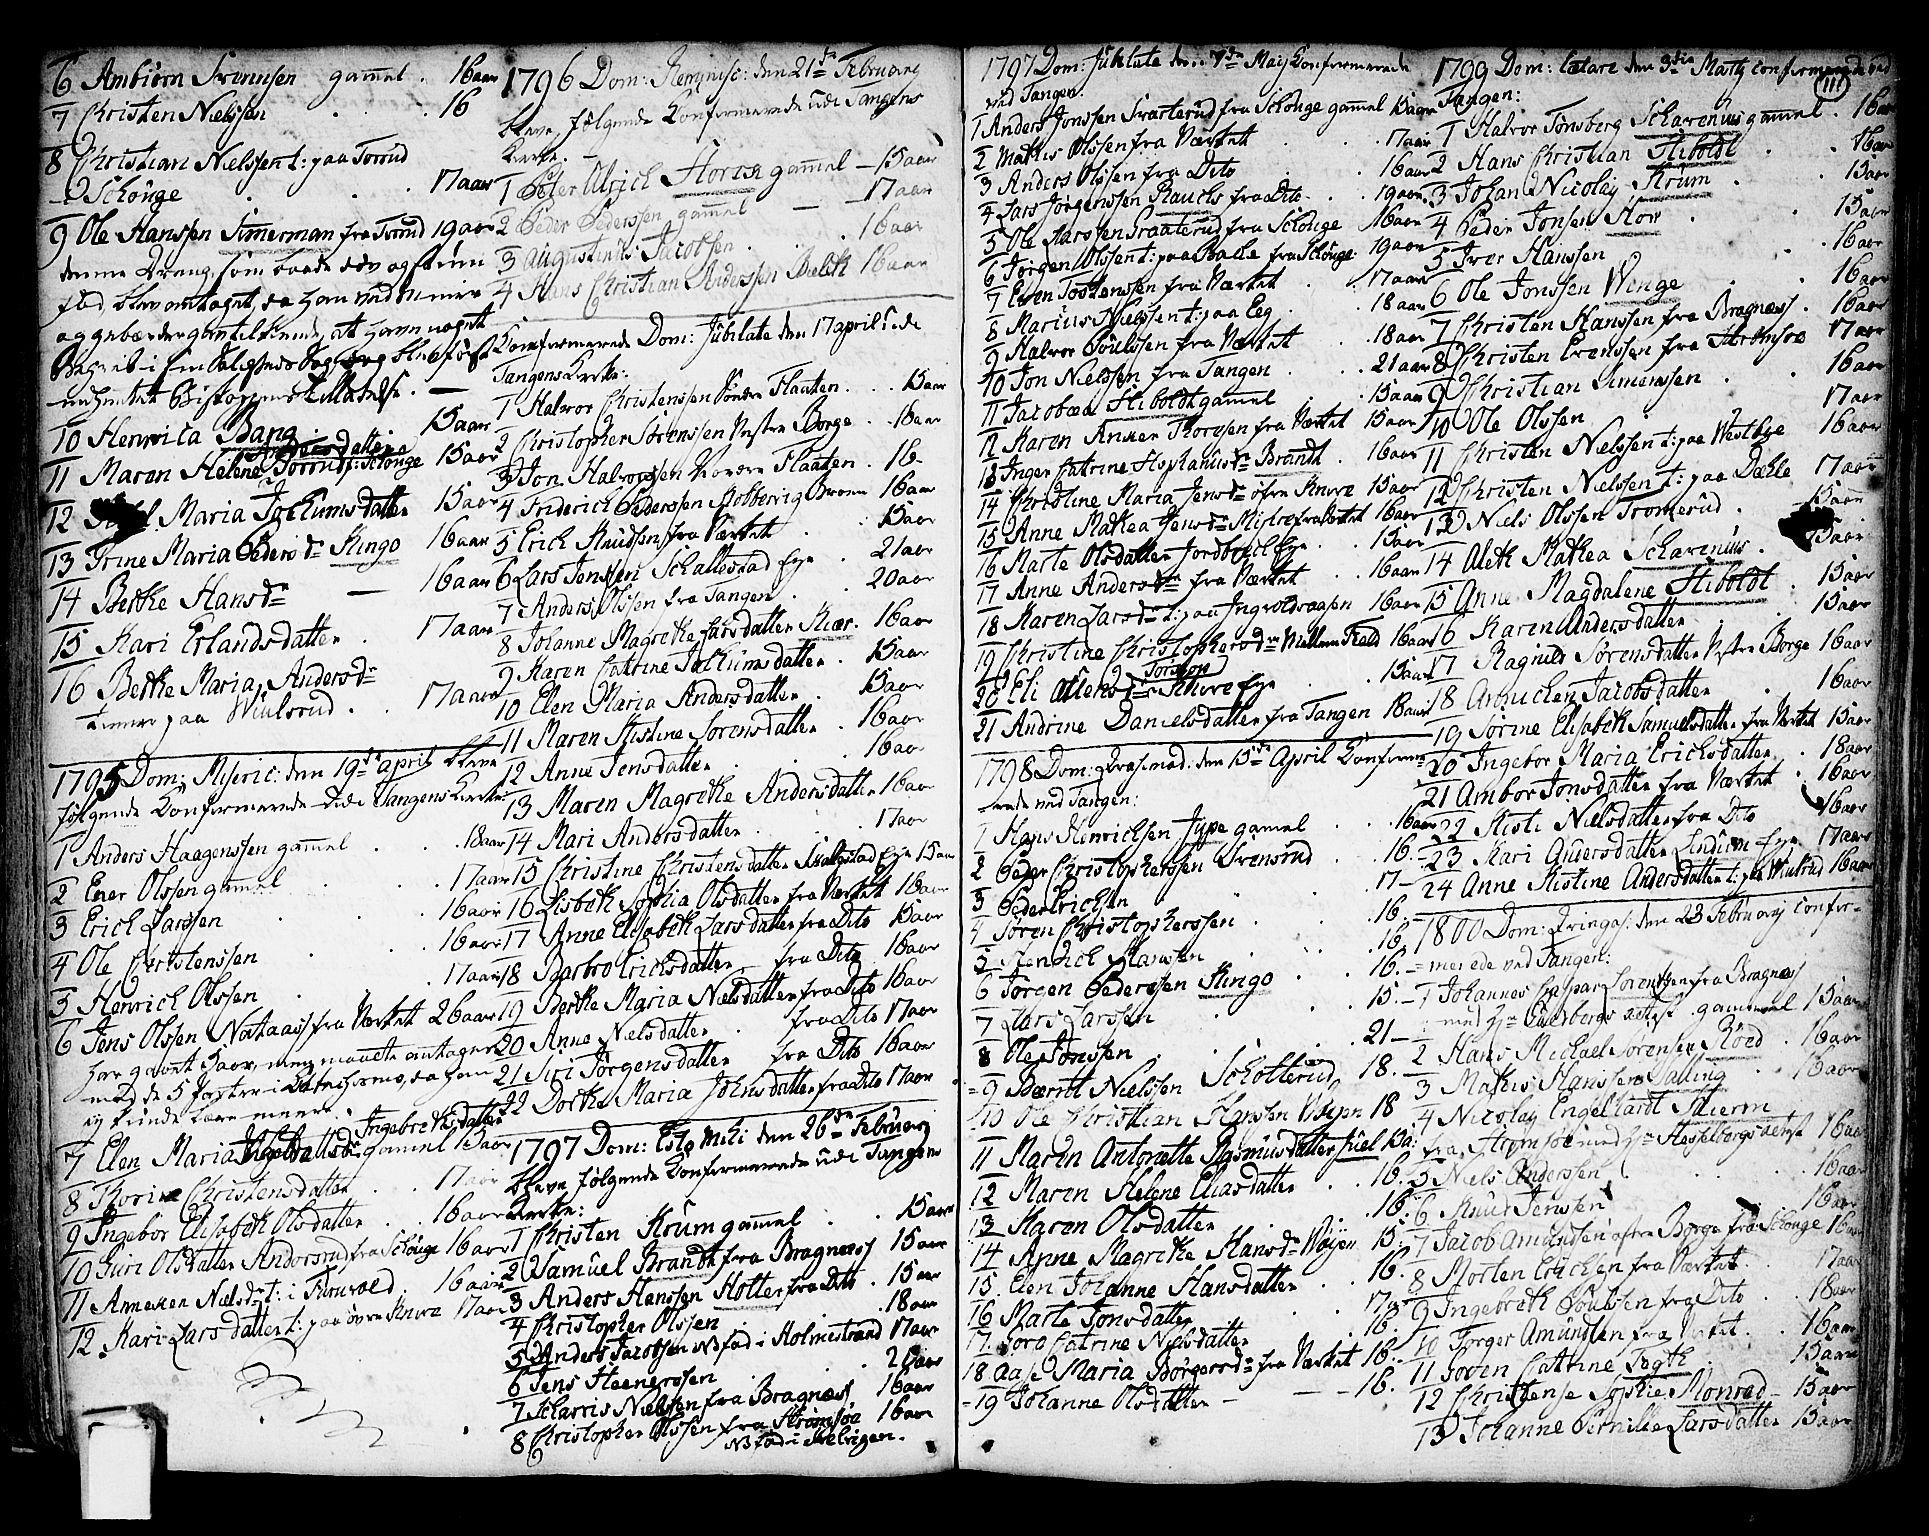 6 Ambiørn Svennsen gamel . 16 aar
7 Christen Nielssen . . . 16
8 Christian Nielssen t: paa Torud
Schouge . . 17 aar
9 Ole Hanssen Timerman fra Torud 19 aar
denne Dreng, som baade døv og stum
fød, blev antaget, da han ved miner
og gebærder gav tilkiende, at havn noget
Begreb i
indhentet Bispens tilladelse. —
10 Henrica Bang . 15 aar
Andersdatter
11 Maren Helene Torud f: Schouge 15 aar
12 Maria Jochumsdatter 15 aar
13 Trine Maria Pedersdr Kingo 16 aar
14 Berthe Hansdr — 16 aar
15 Kari Erlandsdatter . 17 aar
16 Berthe Maria Andersdr
tienner paa Wiulsrud . 17 aar
1795 Dom: Miseric: den 19de april bleve
følgende Konfirmerede udi Tangens Kirke:
1 Anders Haagenssen gamel . . 18 aar
2 Ener Olssen gamel . . 17 aar
3 Erich Larssen . . 16 aar
4 Ole Christenssen . . 16 aar
5 Henrich Olssen . . 17 aar
6 Jens Olssen Nataas fra Værket 26 aar
har gaaet 3 aar, men maatte antages
med de 5 Parter i Catechismo, da han
ej kunde lære meere.
Ingebrethsdatter
7 Elen Maria gamel 15 aar
8 Thorine Christensdatter . . 17 aar
9 Ingebor Elisabeth Olsdatter . . 16 aar
10 Guri Olsdatter Andorsrud fra Schouge 16 aar
11 Anneken Nielsdr t: i Furuvold . 16 aar
12 Kari Larsdatter t: paa øvre Knive 17 aar
1796 Dom: Reminisc: den 21de February
bleve følgende Konfirmerede udi Tangens
Kirke. —
1 Peter Ulrich Horn gamel — 15 aar
2 Peder Pederssen gamel — 17 aar
3 Augustinus Jacobsen . . 16 aar
4 Hans Christian Anderssen Beck 16 aar
Konfirmerede Dom: Jubilate den 17 april udi
Tangens Kirke:
1 Halvor Christenssen Søndre Flaaten . . 15 aar
2 Christopher Sørenssen Vestre Borge . . 16 aar
3 Jon Halvorssen Nordre Flaaten . 16.
4 Friderich Pederssen Brom 16 aar
5 Erich Knudssen fra Værket . 15 aar
6 Lars Jenssen Schallestad Eye . 21 aar
7 Anders Olssen fra Tangen . . 20 aar
8 Johanne Magrethe Larsdatter Kiær . 16 aar
9 Karen Cathrine Jochumsdatter . 15 aar
10 Elen Maria Andersdatter . 15 aar
11 Maren Kistine Sørensdatter . 16 aar
12 Anne Jensdatter . . 16 aar
13 Maren Magrethe Andersdatter 16 aar
14 Mari Andersdatter . . 17 aar
15 Christine Christensdatter Skalgstad Eye 15 aar
16 Lisbeth Sophia Olsdatter fra Værket 16 aar
17 Anne Elisabeth Larsdatter fra Dito 15 aar
18 Barbro Erichsdatter fra Dito 16 aar
19 Berthe Maria Nielsdatter fra Dito 16 aar
20 Anne Nielsdatter . fra Dito 17 aar
21 Siri Jørgensdatter fra Dito 16 aar
22 Dorthe Maria Johnsdatter fra Dito 17 aar
1797 Dom: Esto Mihi den 26de February
bleve følgende Konfirmerede udi Tangens
Kirke:
1 Christen Krum gamel . . 15 aar
2 Samuel Brandt fra Bragness 15 aar
3 Anders Hanssen Holter fra Dito . 15 aar
4 Christopher Olssen . . 18 aar
5 Anders Jacobssen NB fød i Holmestrand 17 aar
6 Jens Heenerssen . . 20 aar
7 Nielssen fra Bragness 16 aar
8 Christopher Olssen fra Strømsøe 16 aar
NB fød i Selvigen.
1797 Dom: Jubilate den 7de Maij Konfirmerede
ved Tangen.
1 Anders Jonssen Svarterud fra Schouge gamel 15 aar
2 Mathis Olssen fra Værket . . 17 aar
3 Anders Olssen fra Dito . . 16 aar
4 Lars Jørgenssen Rauchs fra Dito . . 19 aar
5 Ole Larssen Traaterud fra Schouge 16 aar
6 Jørgen Olssen t: paa Balke fra Schouge 19 aar
7 Even Tostenssen fra Værket . 17 aar
8 Marius Nielssen t: paa Eeg . . 18 aar
9 Halvor Poulssen fra Værket . . 18 aar
10 Jon Nielssen fra Tangen . . 21 aar
11 Jacobæa Stiboldt gamel . 15 aar
12 Karen Anker Thoresen fra Værket 15 aar
13 Inger Catrine Stephanusdr Brandt . 16 aar
14 Christine Maria Jensdr øfre Knive 15 aar
15 Anne Mathea Jensdr fra Værket 16 aar
16 Marte Olsdatter Jordbrech Eye . . 15 aar
17 Anne Andersdr fra Værket . . 16 aar
18 Karen Larsdr t: paa Ingvoldsaapen 16 aar
19 Christine Christophersdr 16 aar
20 Eli Knive Eye . . 15 aar
21 Andrine Danielsdatter fra Tangen 18 aar
1798 Dom: Qvasimod: den 15de April Konfirme-
rede ved Tangen:
1 Hans Henrichsen Type gamel . . 16 aar
2 Peder Christopherssen Svensrud . 16. —
3 Peder Erichsen . . 17 —
4 Søren Christopherssen . . 16. —
5 Hendrich Hanssen . . 16. —
6 Jørgen Pederssen Kingo . . 16. —
7 Lars Larssen . . 15. —
8 Ole Jonssen . . 21 —
9 Bærnt Nielssen Schotterud . 18. —
10 Ole Christian Hansen Wøyen 18
11 Maren Antonette Rasmusdatter Juel 15 a:
12 Maren Helene Eliasdatter . . 16.
13 Karen Olsdatter . . 16.
14 Anne Magrethe Hansdr Wøyen 15.
15 Elen Johanne Hansdatter . . 16.
16 Marte Jonsdatter . . 17.
17 Catrine Nielsdatter . 16.
18 Aase Maria Børgersdr fra Værket 16.
19 Johanne Olsdatter — — 16.
1799 Dom: Lætare den 3die Marty confirmerede ved
111
Tangen:
1 Halvor Tønsberg Schavenius gamel . 16 aar
2 Hans Christian Stiboldt . . 16 aar
3 Johan Nicolay Krum . . 15 aar
4 Peder Jonsen Hor . . 15 aar
5 Iver Hanssen . . 16 aar
6 Ole Jonssen Wenge . . 16 aar
7 Christen Hanssen fra Bragness . 16 aar
8 Christen Evenssen fra Strømsøe 17 aar
9 Christian Simenssen . . 16 aar
10 Ole Olssen . . 17 aar
11 Christen Nielssen t: paa Westbye 16 aar
12 Christen Nielssen t: paa Dæhle 17 aar
13 Niels Olssen Tromerud . 15 aar
14 Aleth Mathea Schavenius . 15 aar
15 Anne Magdalene Stiboldt . 15 aar
16 Karen Andersdatter . 15 aar
17 Ragnild Sørensdatter Vestre Borge 16 aar
18 Annichen Jacobsdatter . 16 aar
19 Sørine Elisabeth Samuelsdatter fra Værket 15 aar
20 Ingebor Maria Erichsdatter . 18 aar
21 Ambor Jonsdatter fra Værket . 16 aar
22 Kisti Nielsdatter fra Dito . 16 aar
23 Kari Andersdatter Lindum Eye 17 aar
24 Anne Kistine Andersdatter t: paa Wiulsrud 16 aar
1800 Dom: Qvinqvag: den 23 February confir-
merede ved Tangen:
1 Johannes Caspar Lorentzen fra Bragness
med Hr attest gammel 15 aar
2 Hans Michael Sørensen Røed . 16 aar
3 Mathis Hanssen Salling . 16 aar
4 Nicolay Engelhardt Stierm
fra Strømsøe med Hr Hasselbergs attest 16 aar
5 Niels Andersen . . 16 aar
6 Knud Jenssen . . 16 aar
7 Jacob Amundsen øfre Borge fra Schouge 16 aar
8 Morten Erichsen fra Værket . 17 aar
9 Ingebreth Poulssen fra Dito . . 18 aar
10 Torger Amundsen fra Værket . . 16 aar
11 Catrine Fogth . 15 aar
12 Christense Sophie Monrad . 15 aar
13 Johanne Pernille Larsdatter 15 aar